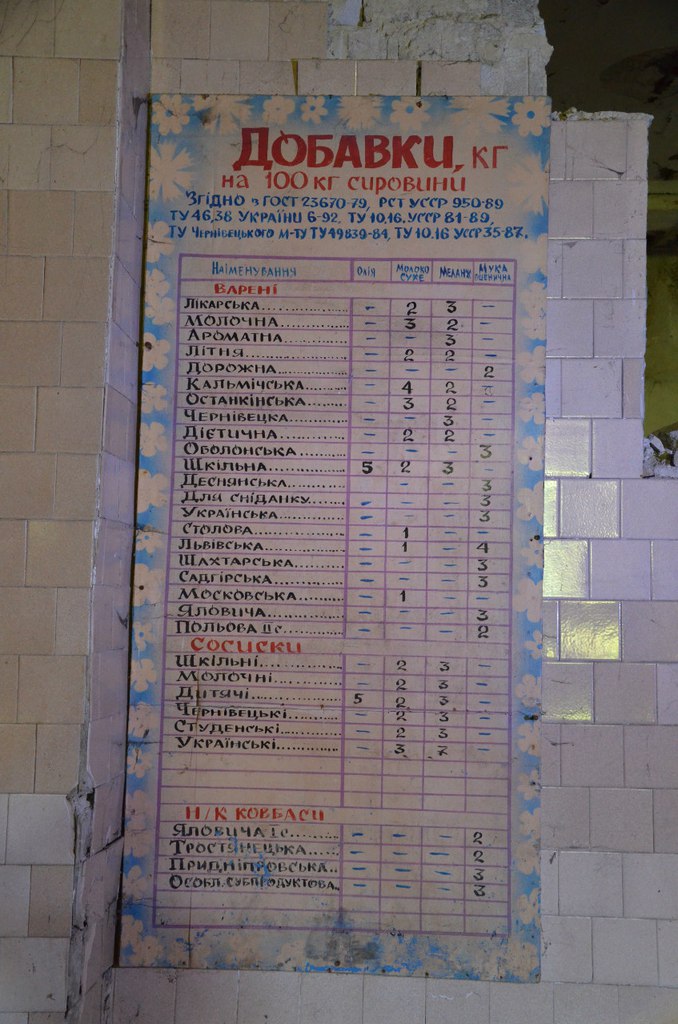 ДОБАВКИ, КГ
на 100 кг сировини
Згідно з ГОСТ 23670-79, РСТ УССР 950-89
ТУ 46,38 України 6-92, ТУ 10,16. УССР 81-89,
ТУ Чернівецького М-ТУ ТУ 49839-84, ТУ 10.16 УССР 35-87.
Найменування Олія Молоко сухе Меланж Мука пшенична
Варені
Лікарська - 2 3 -
Молочна - 3 2 -
Ароматна - - 3 -
Літня - 2 2 -
Дорожна - - - 2
Кальмічська - 4 2
Останкінська - 3 2 -
Чернівецка - - 3 -
Дієтична - 2 2 -
Оболонська - - - 3
Шкільна 5 2 3 -
Деснянська - - - 3
Для сніданку - - - 3
Українська - - - 3
Столова - 1 - -
Львівська - 1 - 4
Шахтарська - - - 3
Садгірська - - - 3
Московська - 1 - -
Яловича - - - 3
Польова ІІ с. - - - 2
Сосиски
Шкільні - 2 3 -
Молочні - 2 3 -
Дитячі 5 2 3 -
Чернівецькі - 2 3 -
Студенські - 2 3 -
Українські - 3 -
Н/К ковбаси
Яловича І с. - - - 2
Тростянецька - - - 2
Придніпровська - - - 3
Особл. субпродуктова - - - 3